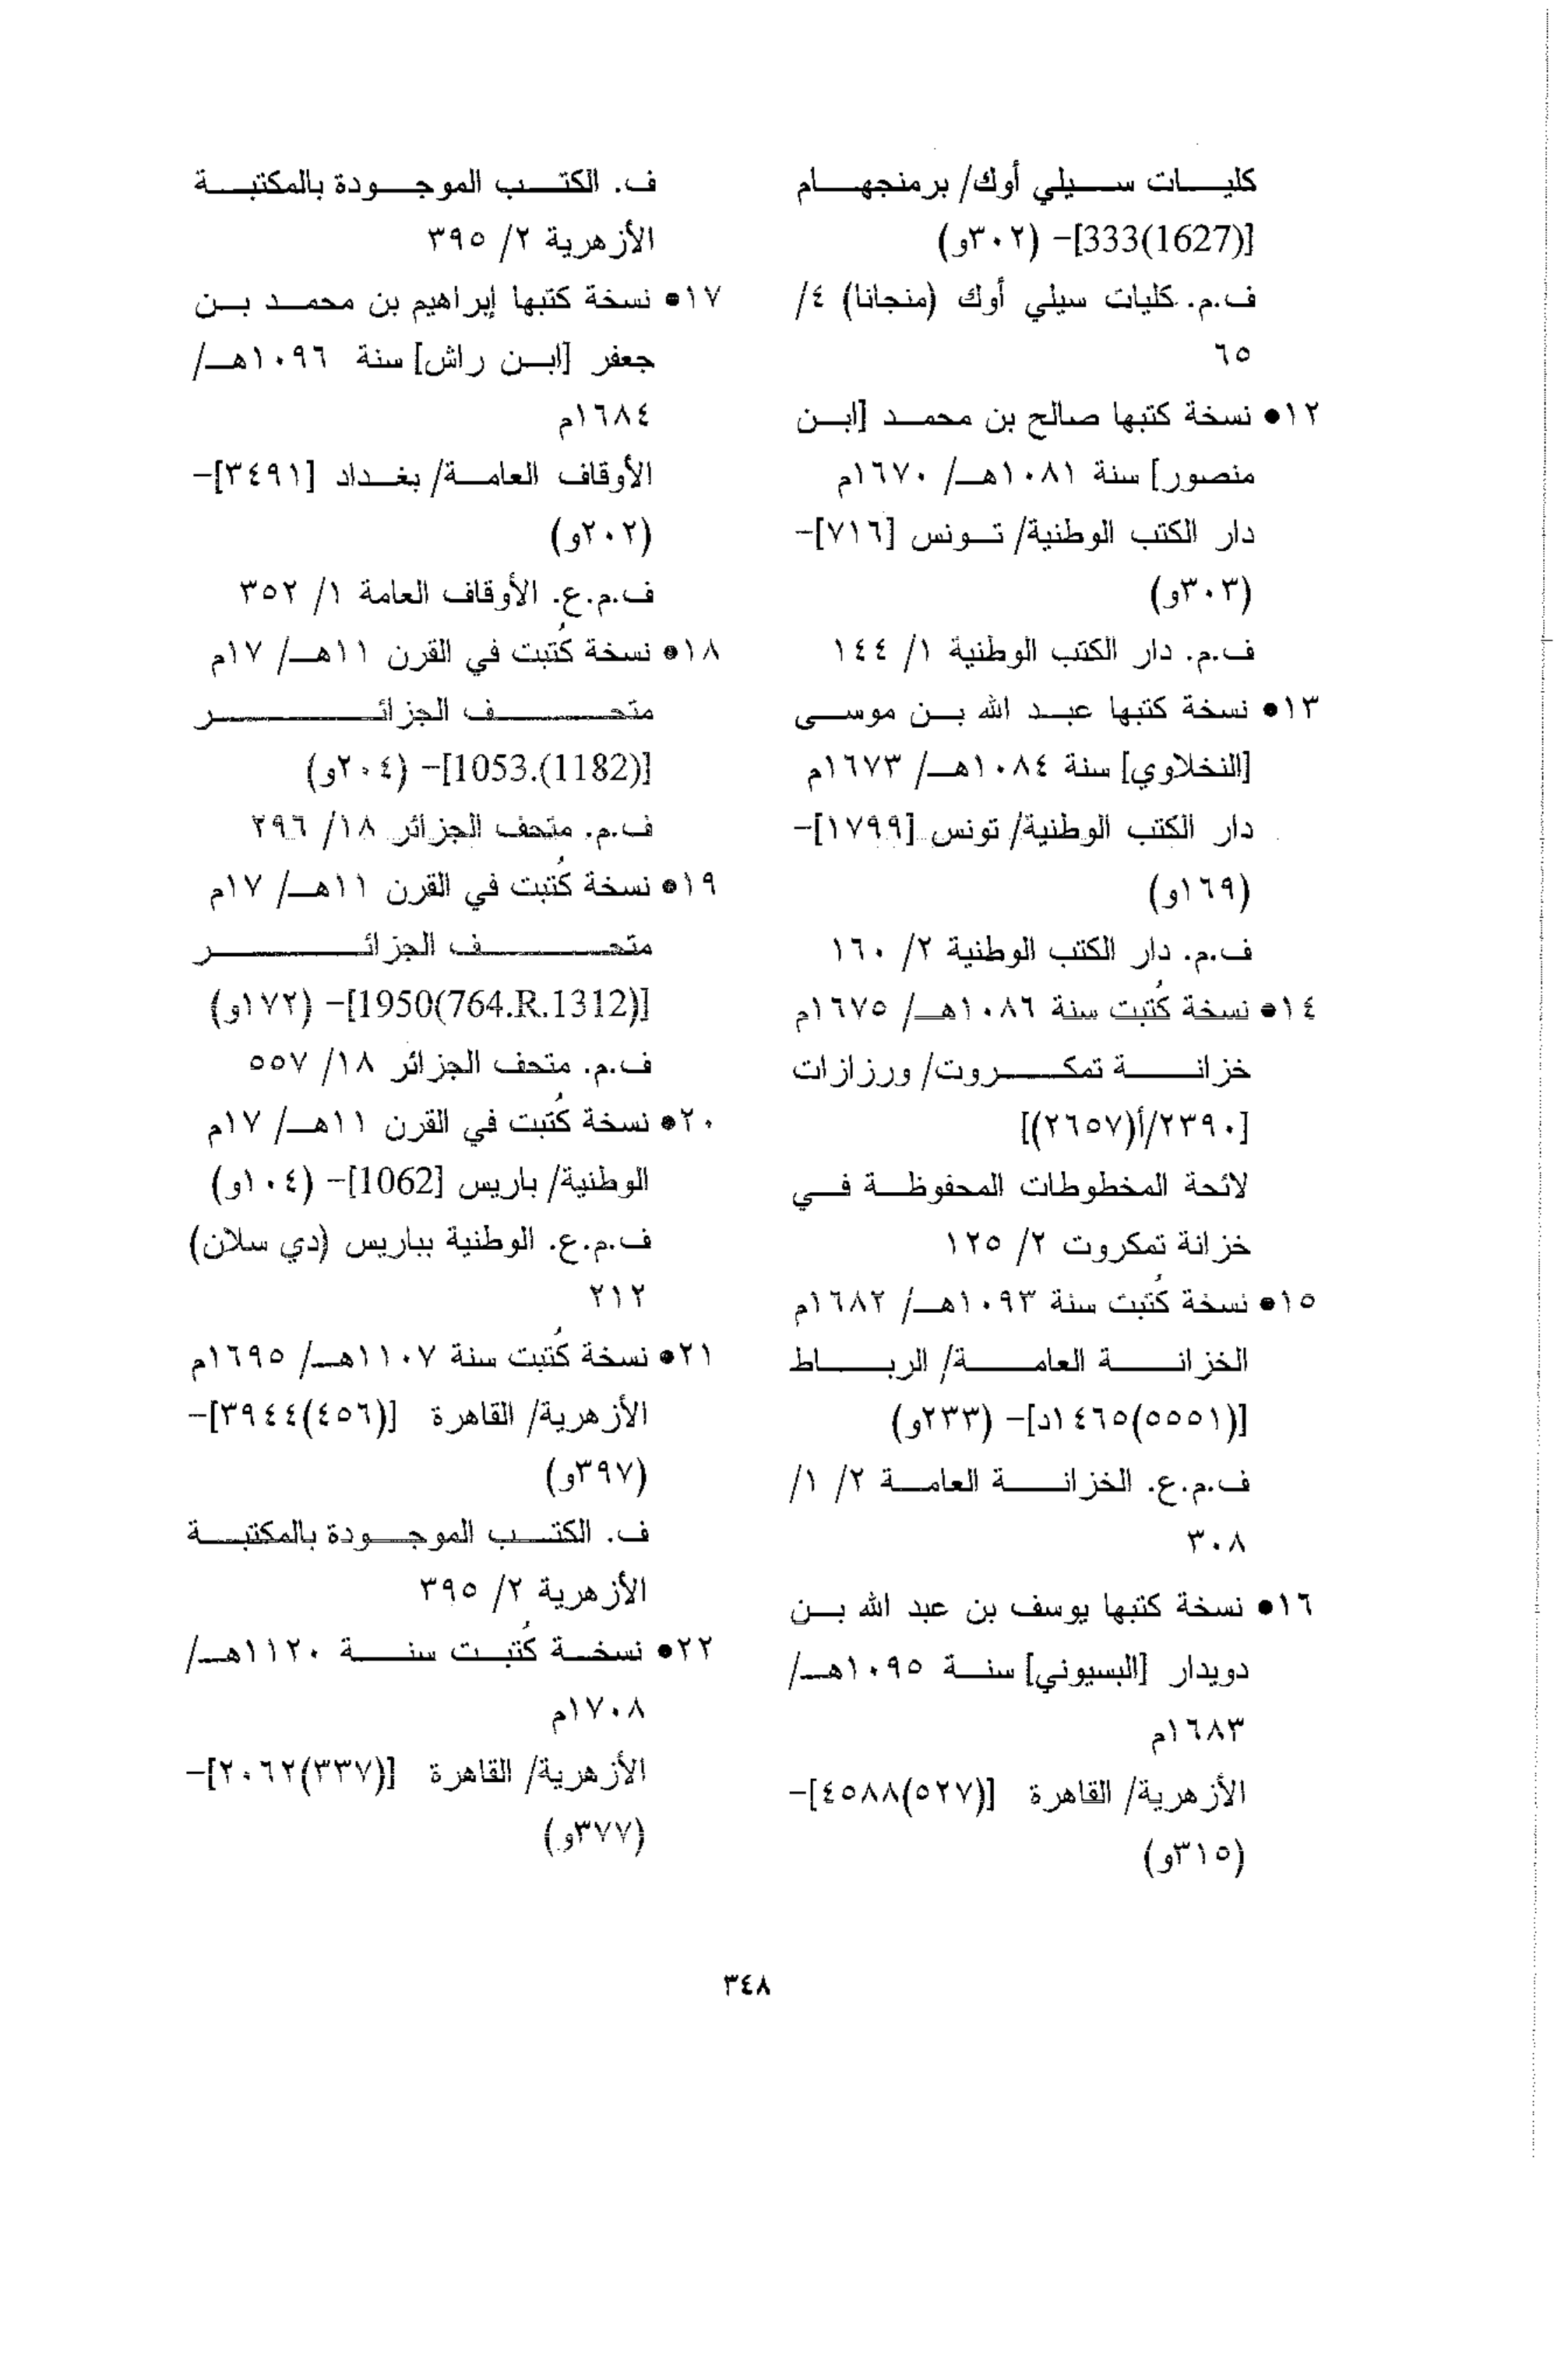 كليات سيلي أوك/ برمنجهام
[333(1627)]- (٣٠٢و)
ف.م. كليات سيلي أوك (منجانا) ٤/
٦٥
١٢● نسخة كتبها صالح بن محمد [ابن
منصور] سنة ١٠٨١هـ/ ١٦٧٠م
دار الكتب الوطنية/ تونس [٧١٦]-
(٣٠٣و)
ف.م. دار الكتب الوطنية ١/ ١٤٤
١٣● نسخة كتبها عبد الله بن موسى
[النخلاوي] سنة ١٠٨٤هـ/ ١٦٧٣م
دار الكتب الوطنية/ تونس [١٧٩٩]-
(١٦٩و)
ف.م. دار الكتب الوطنية ٢/ ١٦٠
١٤● نسخة كُتبت سنة ١٠٨٦هـ/ ١٦٧٥م
خزانة تمكروت/ ورزازات
[٢٣٩٠/أ(٢٦٥٧)]
لائحة المخطوطات المحفوظة في
خزانة تمكروت ٢/ ١٢٥
١٥● نسخة كُتبت سنة ١٠٩٣هـ/ ١٦٨٢م
الخزانة العامة/ الرباط
[(٥٥٥١)١٤٦٥د]- (٢٣٣و)
ف.م.ع. الخزانة العامة ٢/ ١/
٣٠٨
١٦● نسخة كتبها يوسف بن عبد الله بن
دويدار [البسيوني] سنة ١٠٩٥هـ/
١٦٨٣م
الأزهرية/ القاهرة [(٥٢٧)٤٥٨٨]-
(٣١٥و)
ف. الكتب الموجودة بالمكتبة
الأزهرية ٢/ ٣٩٥
١٧● نسخة كتبها إبراهيم بن محمد بن
جعفر [ابن راش] سنة ١٠٩٦هـ/
١٦٨٤م
الأوقاف العامة/ بغداد [٣٤٩١]-
(٢٠٢و)
ف.م.ع. الأوقاف العامة ١/ ٣٥٢
١٨● نسخة كُتبت في القرن ١١هـ/ ١٧م
متحف الجزائر
[1053.(1182)]- (٢٠٤و)
ف.م. متحف الجزائر ١٨/ ٢٩٦
١٩● نسخة كُتبت في القرن ١١هـ/ ١٧م
متحف الجزائر
[1950(764.R.1312)]- (١٧٢و)
ف.م. متحف الجزائر ١٨/ ٥٥٧
٢٠● نسخة كُتبت في القرن ١١هـ/ ١٧م
الوطنية/ باريس [1062]- (١٠٤و)
ف.م.ع. الوطنية بباريس (دي سلان)
٢١٢
٢١● نسخة كُتبت سنة ١١٠٧هـ/ ١٦٩٥م
الأزهرية/ القاهرة [(٤٥٦)٣٩٤٤]-
(٣٩٧و)
ف. الكتب الموجودة بالمكتبة
الأزهرية ٢/ ٣٩٥
٢٢● نسخة كُتبت سنة ١١٢٠هـ/
١٧٠٨م
الأزهرية/ القاهرة [(٣٣٧)٢٠٦٢]-
(٣٧٧و)
٣٤٨